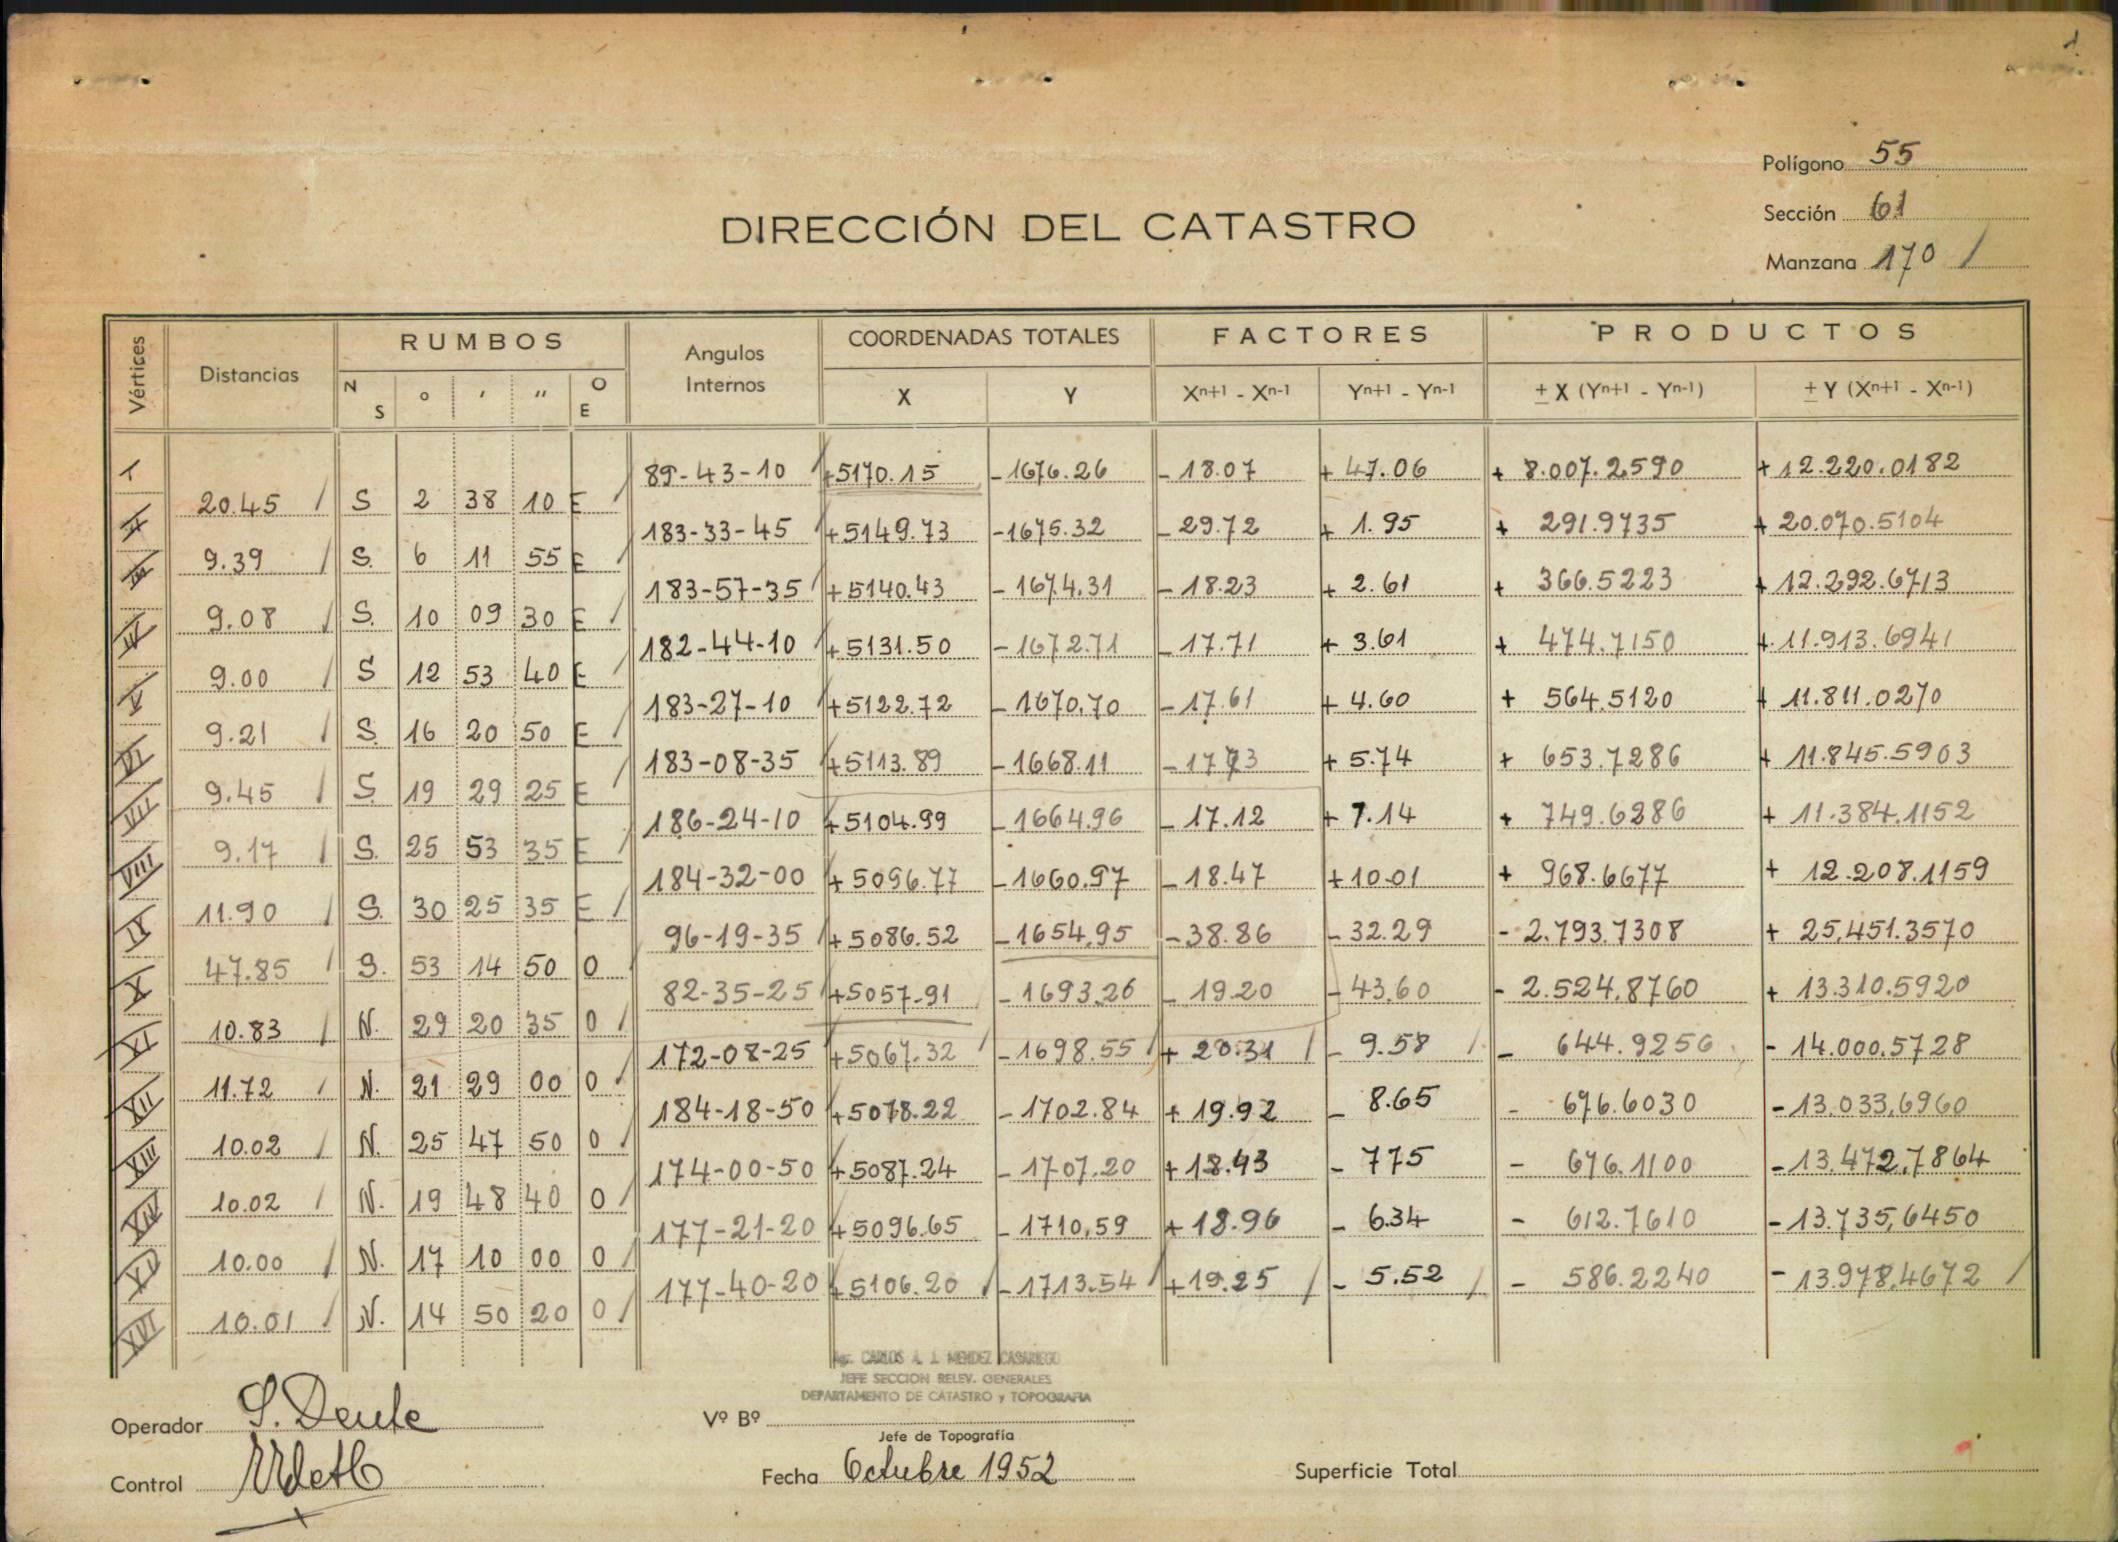 1
Polígono 55
Sección 61
Manzana 170 /
DIRECCIÓN DEL CATASTRO
Vértices Distancias RUMBOS Angulos Internos COORDENADAS TOTALES FACTORES PRODUCTOS
N S ° ′ ″ O E X Y Xn+1 - Xn-1 Yn+1 - Yn-1 ± X (Yn+1 - Yn-1) ± Y (Xn+1 - Xn-1)
I 89-43-10 +5170.15 -1676.26 -18.07 +47.06 + 8.007.2590 +12.220.0182
20.45 S 2 38 10 E
II 183-33-45 +5149.73 -1675.32 -29.72 + 1.95 + 291.9735 + 20.070.5104
9.39 S. 6 11 55 E
III 183-57-35 +5140.43 -1674.31 -18.23 + 2.61 + 366.5223 +12.292.6713
9.08 S. 10 09 30 E
IV 182-44-10 +5131.50 -1672.71 -17.71 + 3.61 + 474.7150 +11.913.6941
9.00 S 12 53 40 E
V 183-27-10 +5122.72 -1670.70 -17.61 + 4.60 + 564.5120 + 11.811.0270
9.21 S. 16 20 50 E
VI 183-08-35 +5113.89 -1668.11 -17.73 + 5.74 + 653.7286 + 11.845.5903
9.45 S. 19 29 25 E
VII 186-24-10 +5104.99 -1664.96 -17.12 + 7.14 + 749.6286 + 11.384.1152
9.17 S. 25 53 35 E
VIII 184-32-00 +5096.77 -1660.97 -18.47 +10.01 + 968.6677 + 12.208.1159
11.90 S. 30 25 35 E
IX 96-19-35 +5086.52 -1654.95 -38.86 -32.29 - 2.793.7308 + 25.451.3570
47.85 S. 53 14 50 O
X 82-35-25 +5057.91 -1693.26 -19.20 -43.60 - 2.524.8760 + 13.310.5920
10.83 N. 29 20 35 O
XI 172-08-25 +5067.32 -1698.55 + 20.31 - 9.58 - 644.9256 - 14.000.5728
11.72 N. 21 29 00 O
XII 184-18-50 +5078.22 -1702.84 +19.92 - 8.65 - 676.6030 -13.033.6960
10.02 N. 25 47 50 O
XIII 174-00-50 +5087.24 -1707.20 +18.43 - 775 - 676.1100 -13.472.7864
10.02 N. 19 48 40 O
XIV 177-21-20 +5096.65 -1710.59 +18.96 - 6.34 - 612.7610 -13.735.6450
10.00 N. 17 10 00 O
XV 177-40-20 +5106.20 -1713.54 +19.25 - 5.52 - 586.2240 - 13.978.4672
10.01 N. 14 50 20 O
XVI
Agr. CARLOS A. J. MENDEZ CASARIEGO
JEFE SECCION RELEV. GENERALES
DEPARTAMENTO DE CATASTRO y TOPOGRAFIA
Operador Vº Bº
Jefe de Topografía
Control Fecha Octubre 1952 Superficie Total